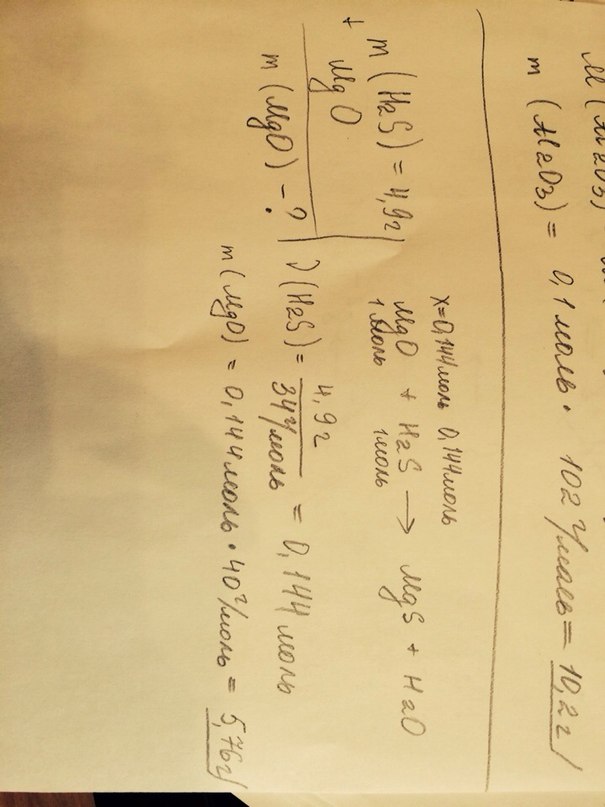 M (Al2O3)
m (Al2O3) = 0,1 моль · 102 г/моль = 10,2 г
m (H2S) = 4,9 г
+ MgO
m (MgO) - ?
x=0,144моль 0,144моль
MgO + H2S → MgS + H2O
1моль 1моль
ν (H2S) = 4,9 г / 34 г/моль = 0,144 моль
m (MgO) = 0,144моль · 40 г/моль = 5,76 г